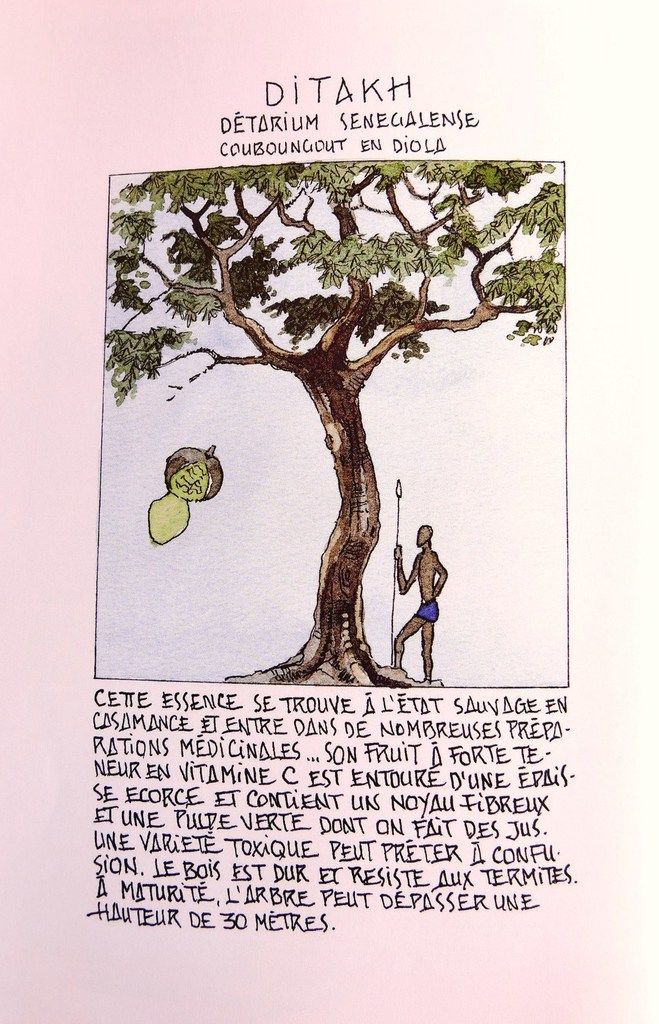 DITAKH
DÉTARIUM SENEGALENSE
COUBOUNGOUT EN DIOLA
CETTE ESSENCE SE TROUVE À L'ÉTAT SAUVAGE EN
CASAMANCE ET ENTRE DANS DE NOMBREUSES PRÉPA-
RATIONS MÉDICINALES... SON FRUIT À FORTE TE-
NEUR EN VITAMINE C EST ENTOURÉ D'UNE ÉPAIS-
SE ECORCE ET CONTIENT UN NOYAU FIBREUX
ET UNE PULPE VERTE DONT ON FAIT DES JUS.
UNE VARIETÉ TOXIQUE PEUT PRÊTER À CONFU-
SION. LE BOIS EST DUR ET RESISTE AUX TERMITES.
À MATURITÉ, L'ARBRE PEUT DÉPASSER UNE
HAUTEUR DE 30 MÈTRES.